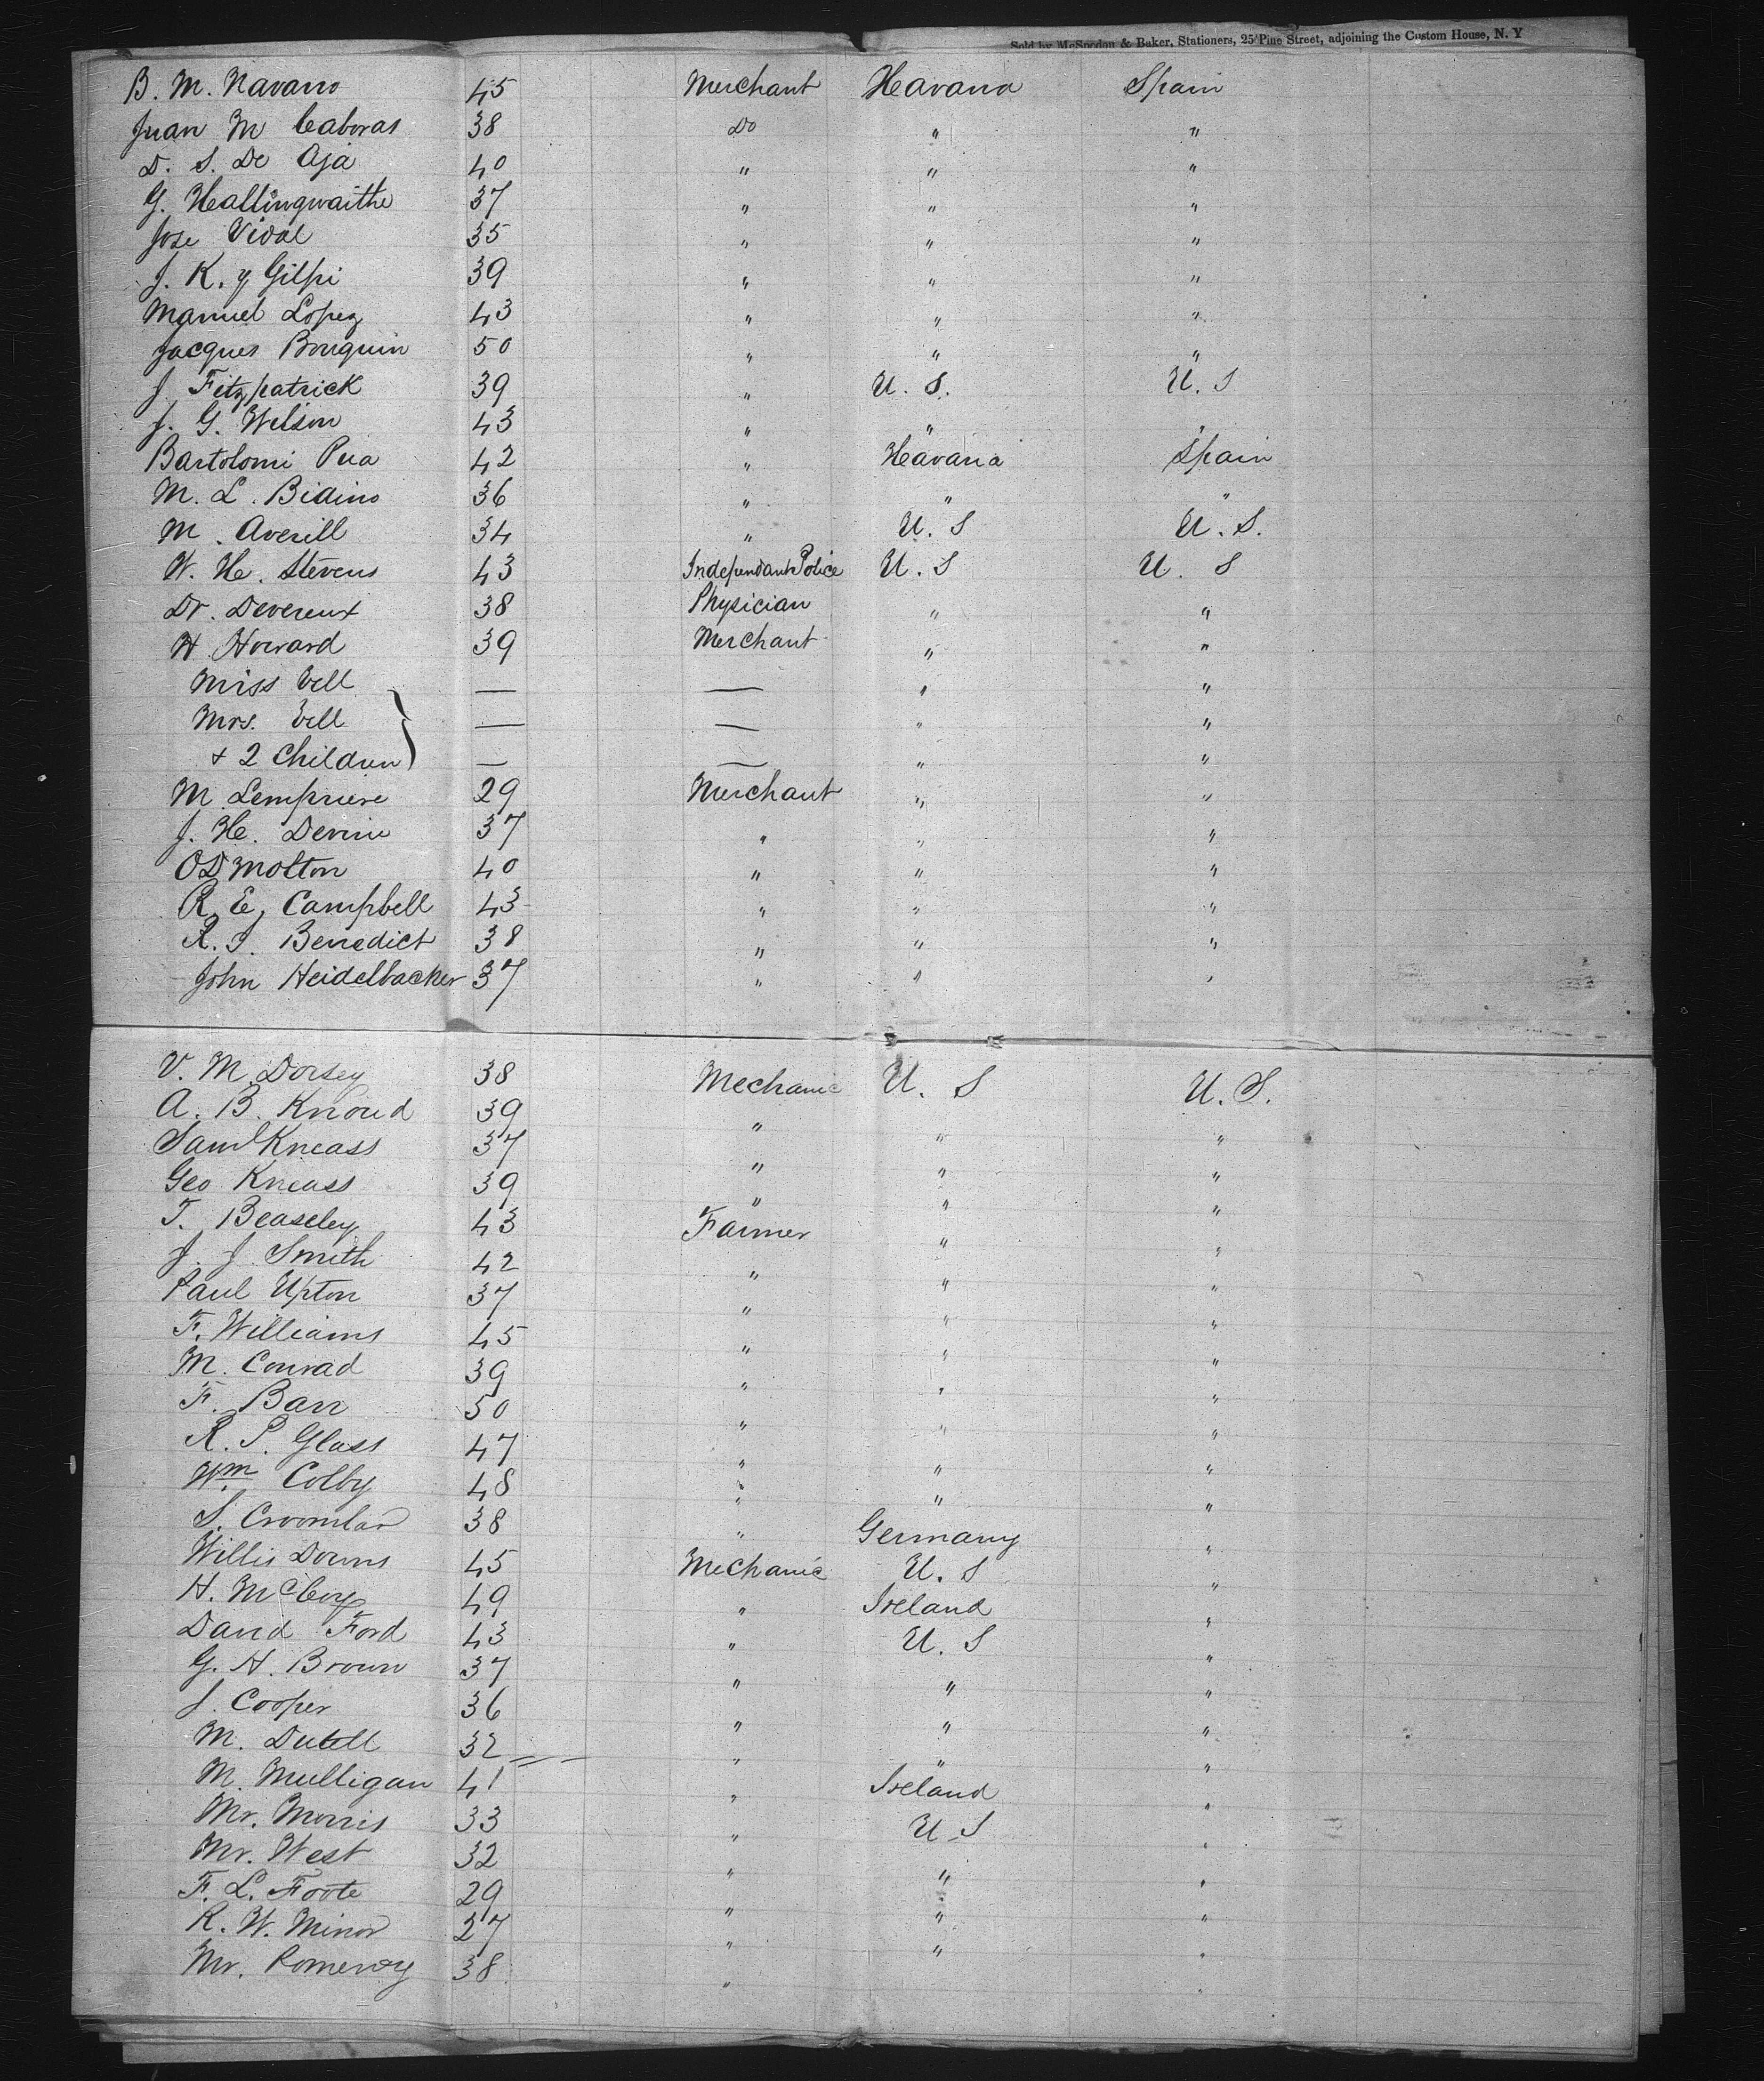 Sold by McSpedon & Baker, Stationers, 25 Pine Street, adjoining the Custom House, N. Y
B. M. Navarro 45 Merchant Havana Spain
Juan M Caboras 38 Do " "
D. S. De Aja 40 " " "
G. Hallingwaithe 37 " " "
Jose Vidal 35 " " "
J. K. y Gilpi 39 " " "
Manuel Lopez 43 " " "
Jacques Bouquin 50 " " "
J Fitzpatrick 39 " U. S. U. S
J. G. Wilson 43 " " "
Bartolomi Pua 42 " Havana Spain
M. L. Bidino 36 " " "
M. Averill 34 " U. S U. S.
W. H. Stevens 43 Independant Police U. S U. S
Dr. Devereux 38 Physician " "
H Howard 39 Merchant " "
Miss Vell — — " "
Mrs. Vell — — " "
+ 2 Children — — " "
M Lempriere 29 Merchant " "
J. H. Devine 37 " " "
O D Molton 40 " " "
R. E. Campbell 43 " " "
R. J. Benedict 38 " " "
John Heidelbacker 37 " " "
V. M. Dorsey 38 Mechanic U. S U. S.
A. B. Knoud 39 " " "
Saml Kneass 37 " " "
Geo Kneass 39 " " "
T. Beaseley 43 Farmer " "
J. J. Smith 42 " " "
Paul Upton 37 " " "
F. Williams 45 " " "
M. Conrad 39 " " "
F. Barr 50 " " "
R. P. Glass 47 " " "
Wm. Colby 48 " " "
S. 38 " Germany "
Willis Downs 45 Mechanic U. S "
H. McCoy 49 " Ireland "
David Ford 43 " U. S "
G. H. Brown 37 " " "
J. Cooper 36 " " "
M. Dutell 32 " " "
M. Mulligan 41 " Ireland "
Mr. Morris 33 " U S "
Mr. West 32 " " "
F. L. Foote 29 " " "
R. W. Minor 27 " " "
Mr. Pomeroy 38 " "